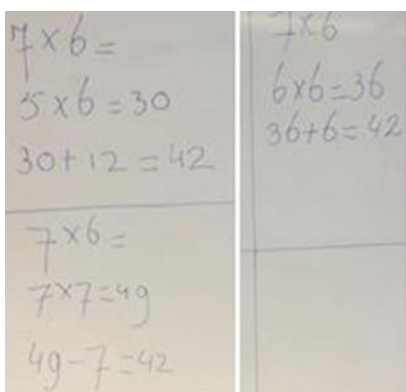 7×6=
5×6=30
30+12=42
7×6=
7×7=49
49-7=42
7×6
6×6=36
36+6=42